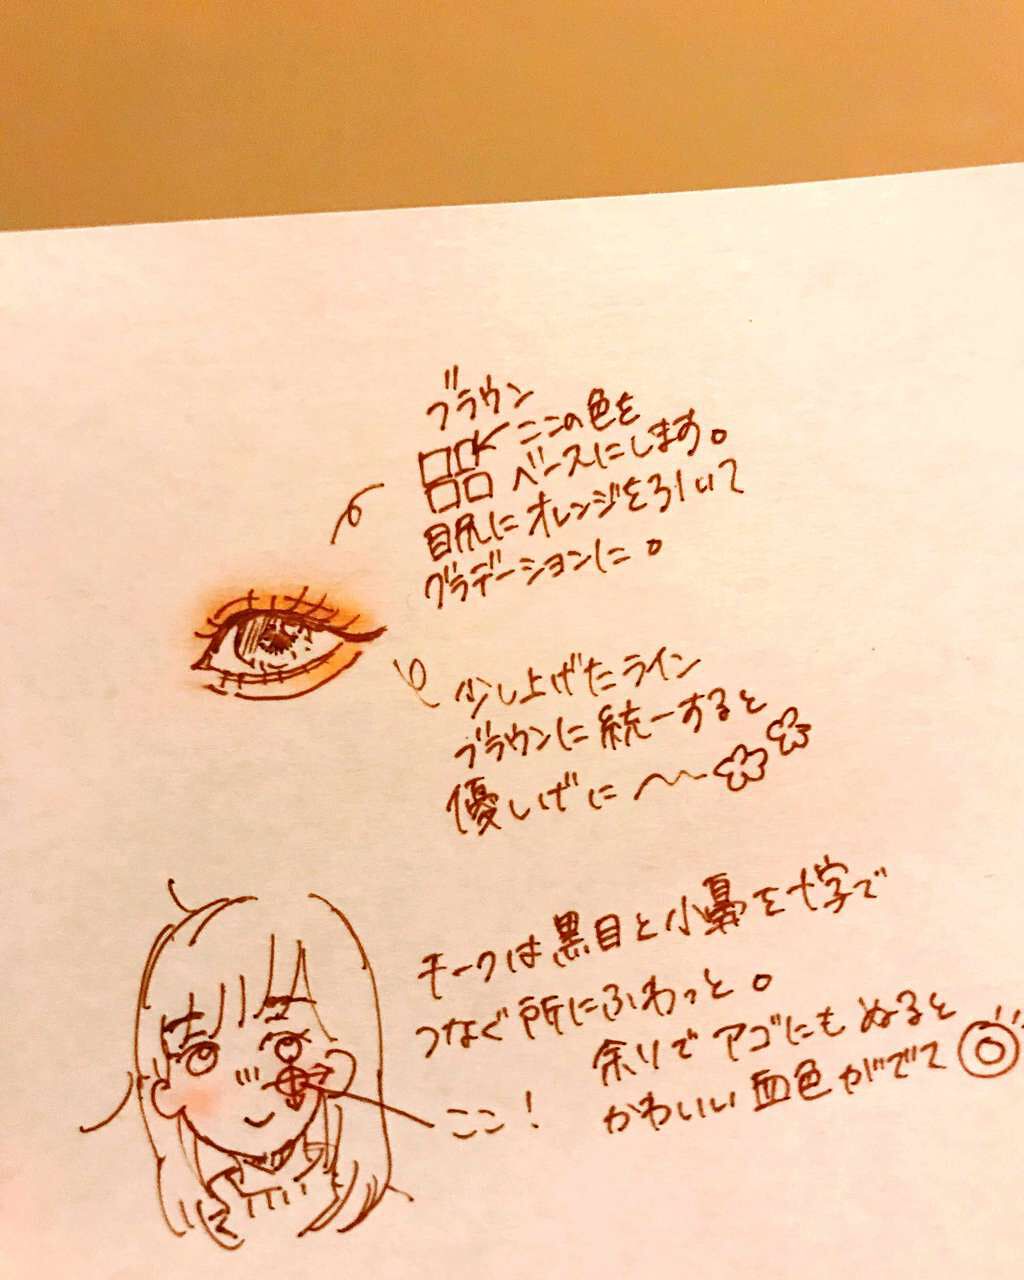 ブラウン
ここの色を
ベースにします。
目尻にオレンジを引いて
グラデーションに。
少し上げたライン
ブラウンに統一すると
優しげに〜
チークは黒目と小鼻を十字で
つなぐ所にふわっと。
余りでアゴにもぬると
かわいい血色がでて◎
ここ!